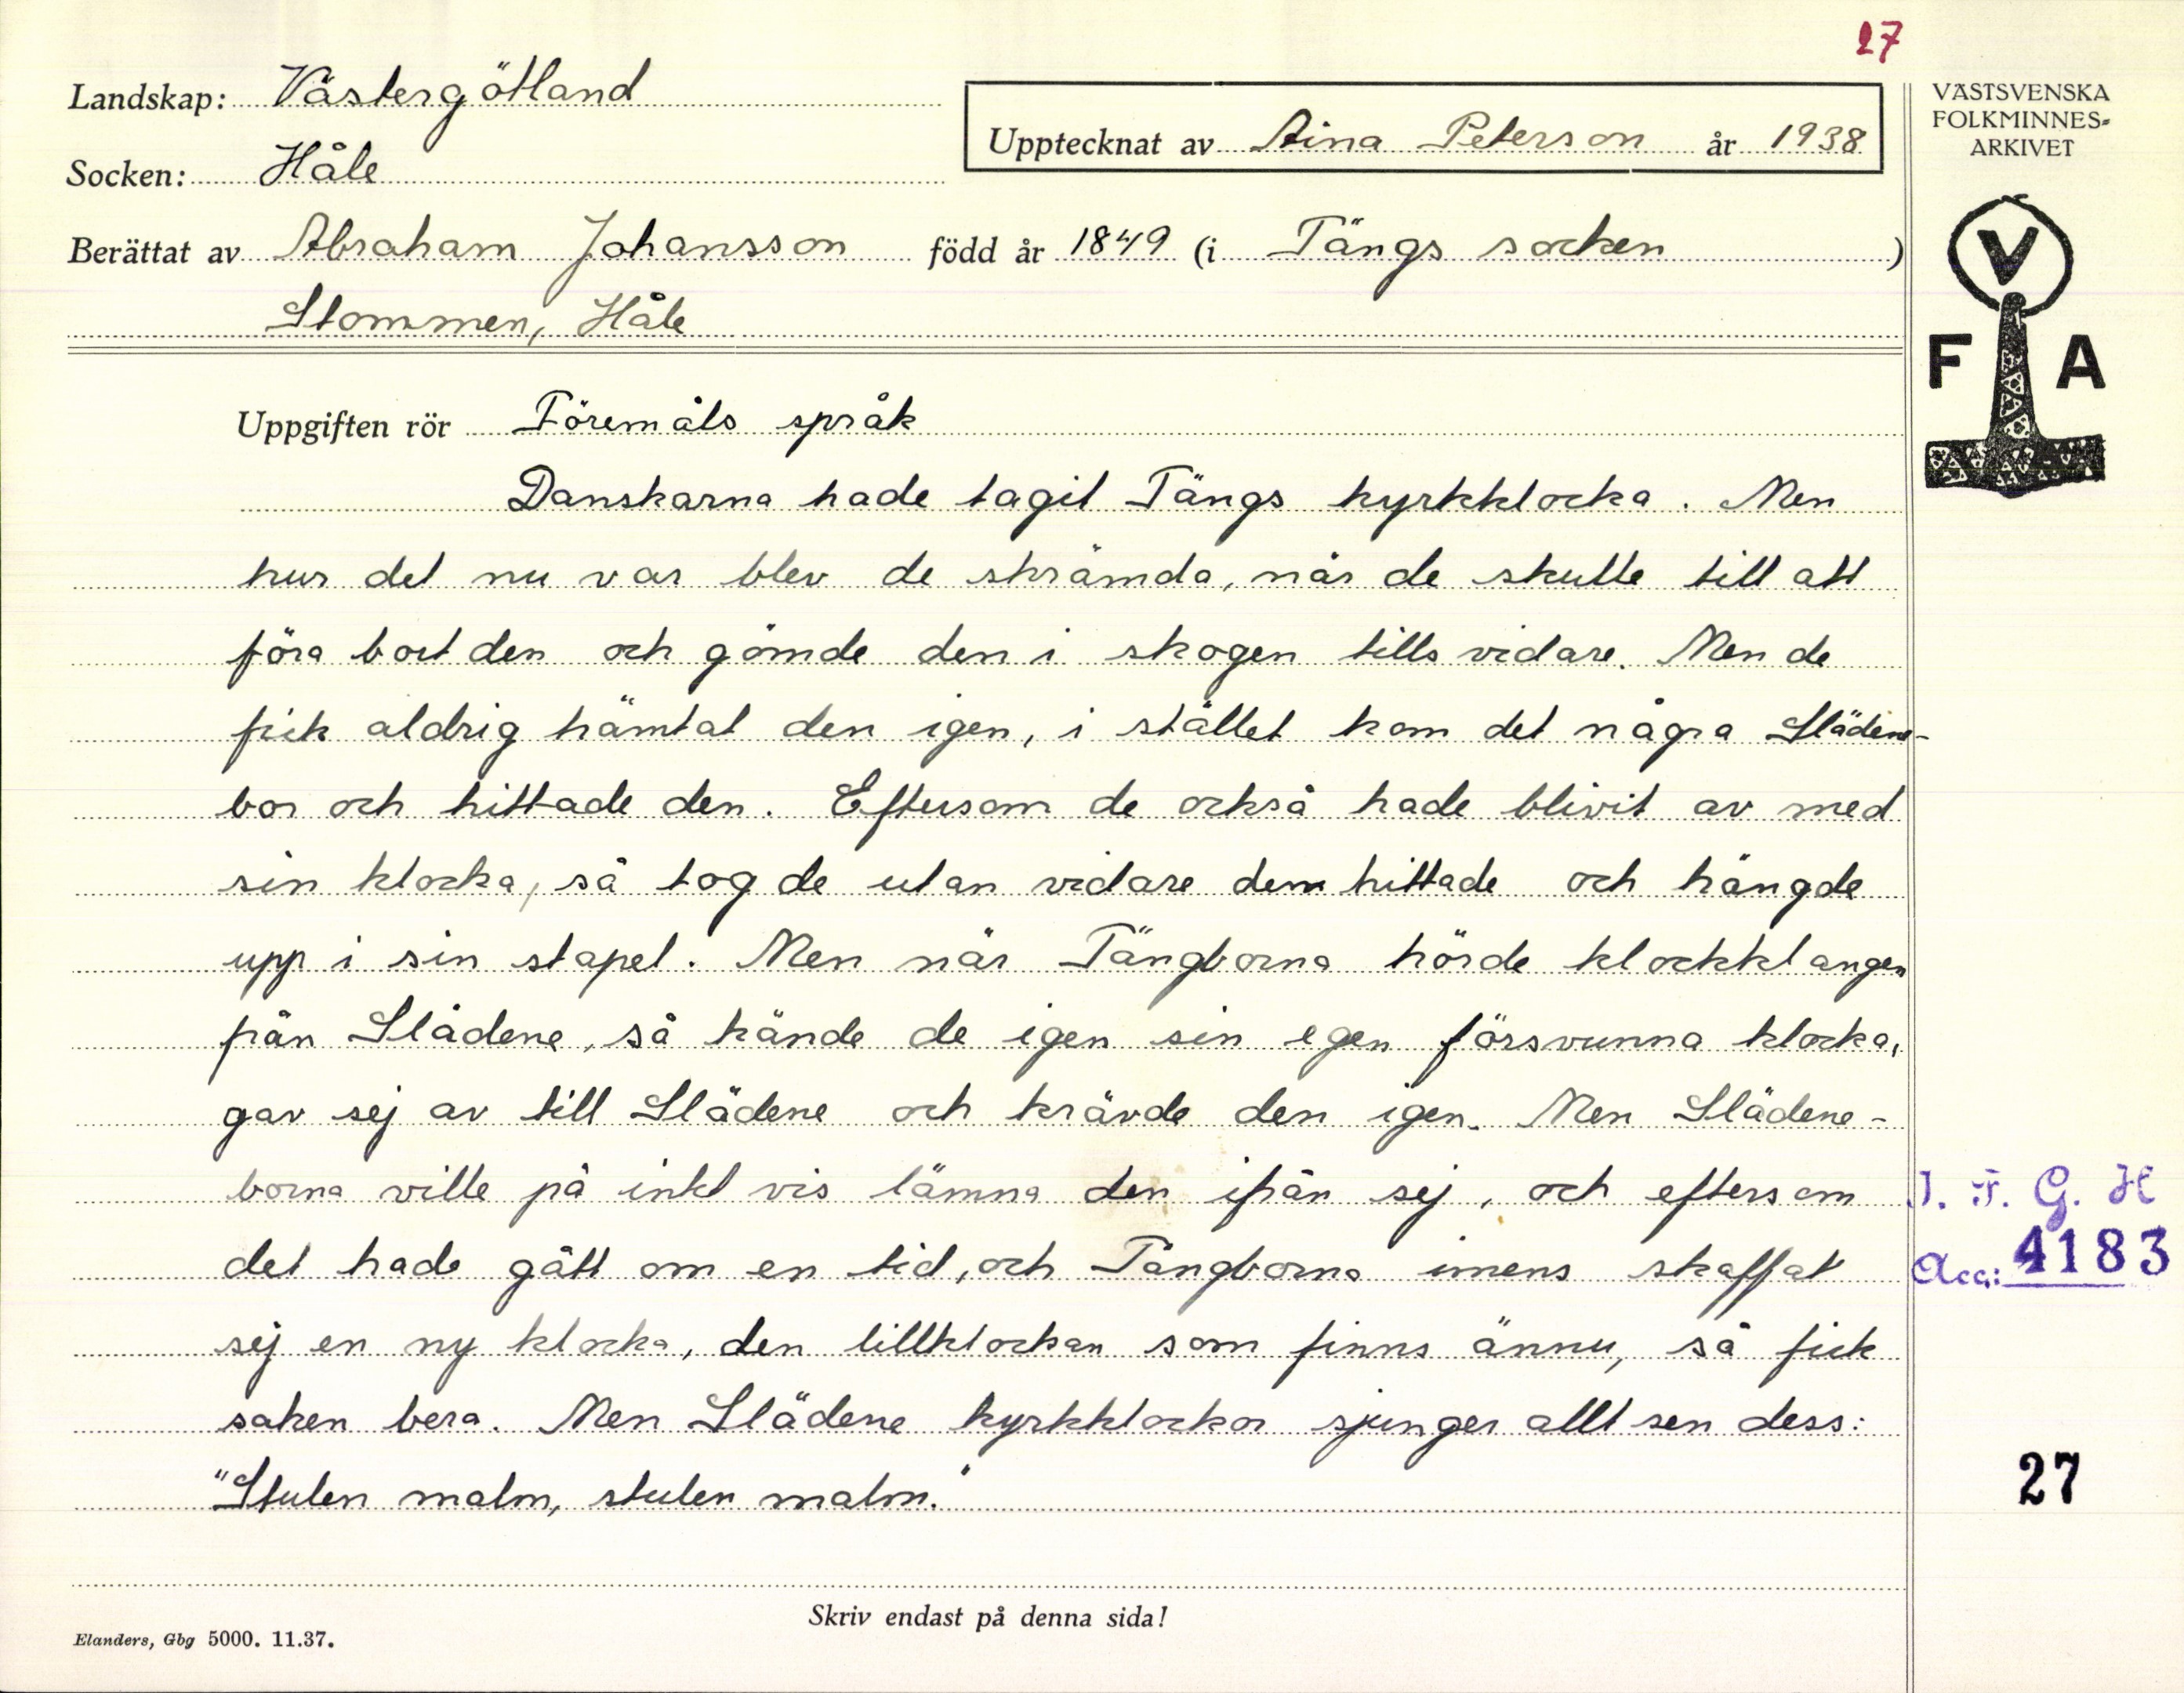 27
Landskap: Västergötland
Upptecknat av Aina Peterson år 1938
Socken: Håle
Berättat av Abraham Johansson född år 1849 (i Tängs socken )
Stommen, Håle
VÄSTSVENSKA
FOLKMINNES-
ARKIVET
V
F A
Uppgiften rör Föremåls språk
Danskarna hade tagit Tängs kyrkklocka. Men
hur det nu var blev de skrämda, när de skulle till att
föra bort den och gömde den i skogen tills vidare. Men de
fick aldrig hämtat den igen, i stället kom det några Slädene-
bor och hittade den. Eftersom de också hade blivit av med
sin klocka, så tog de utan vidare dem hittade och hängde
upp i sin stapel. Men när Tängborna hörde klockklangen
från Slädene, så kände de igen sin egen försvunna klocka,
gav sej av till Slädene och krävde den igen. Men Slädene-
borna ville på intet vis lämna den ifrån sej, och eftersom
det hade gått om en tid, och Tängborna imens skaffat
sej en ny klocka, den lillklockan som finns ännu, så fick
saken bera. Men Slädene kyrkklockor sjunger allt sen dess:
"Stulen malm, stulen malm."
I. F. G. H
Acc: 4183
27
Skriv endast på denna sida!
Elanders, Gbg 5000. 11.37.